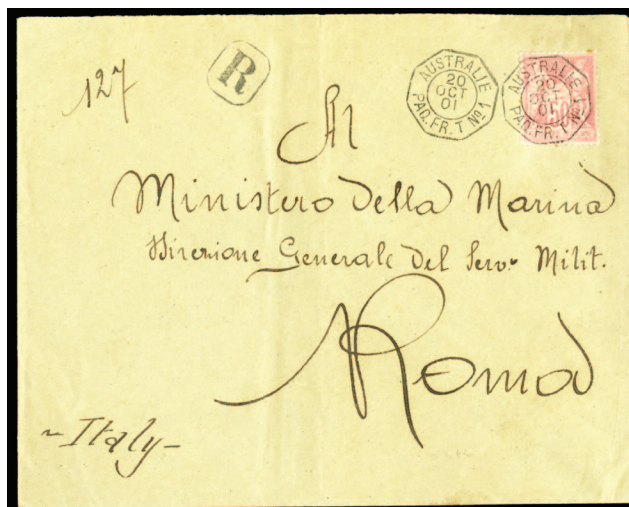 127
R
AUSTRALIE
20
OCT
01
PAQ. FR. T No 1
AUSTRALIE
20
OCT
01
PAQ. FR. T No 1
50
Al
Ministero della Marina
Direzione Generale del Serv. Milit.
Roma
- Italy -